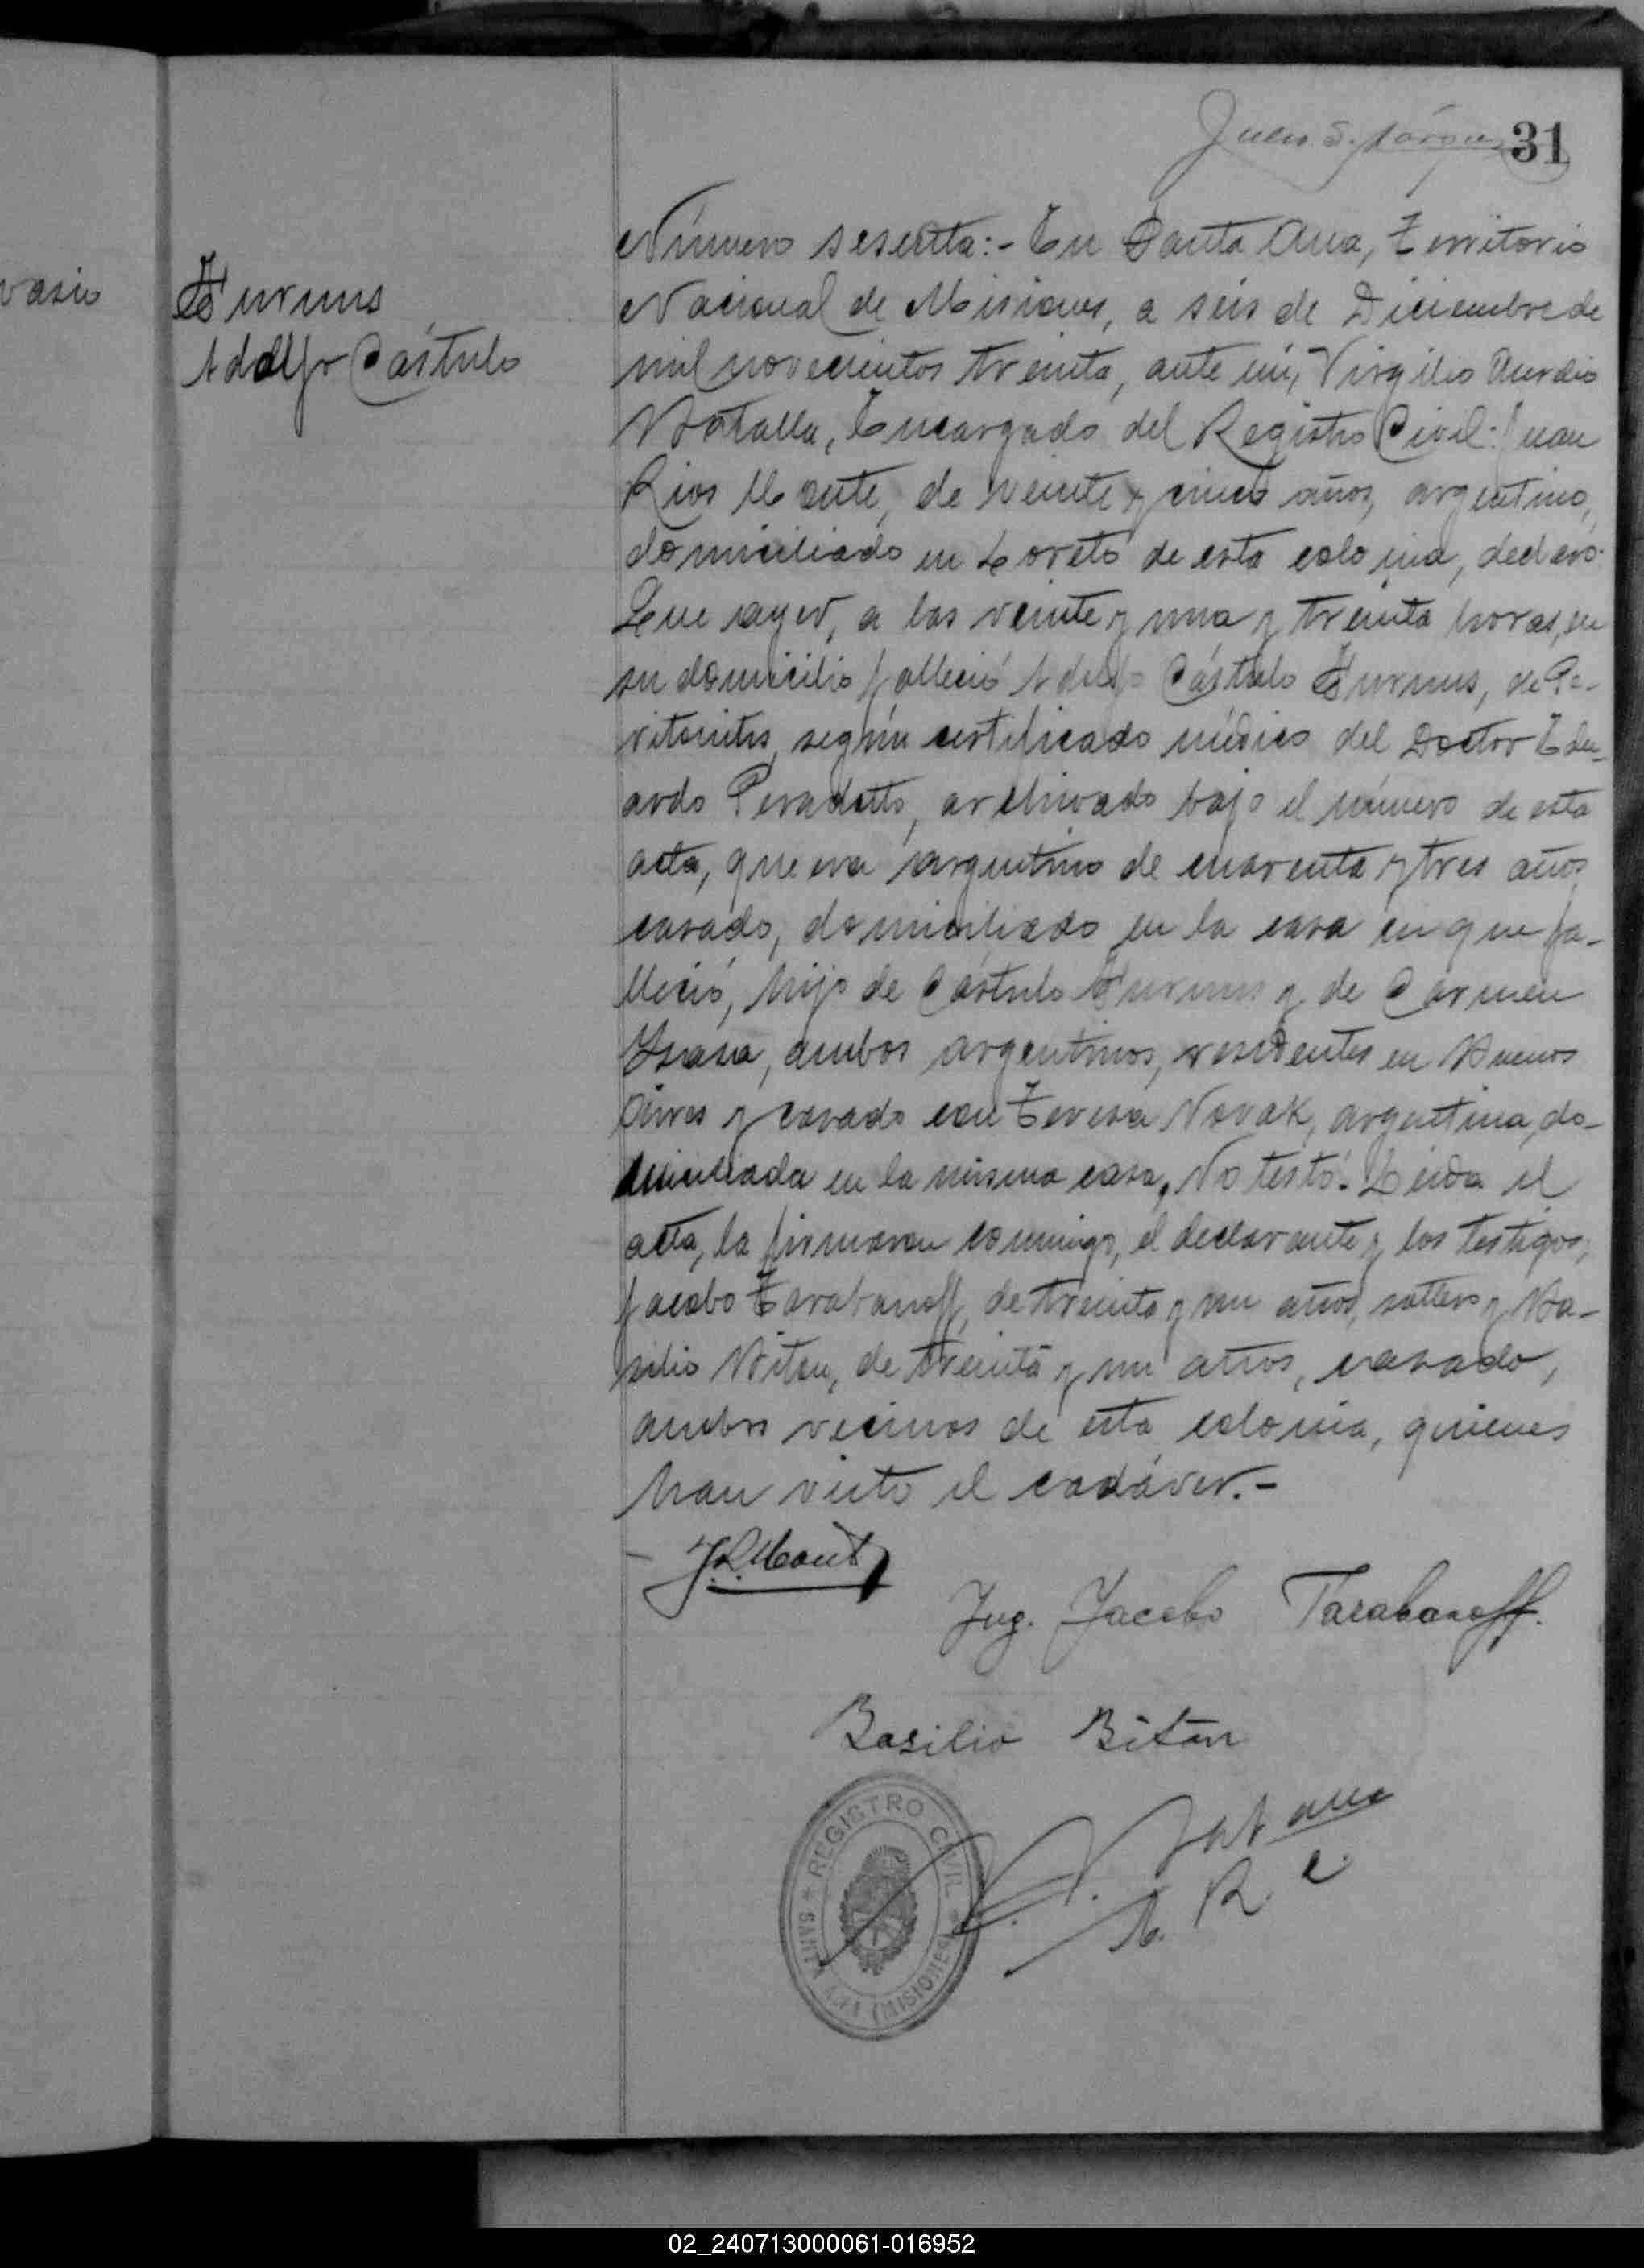 31
vasio
Furnus
Adolfo Cástulo
Número sesenta:- En Santa Ana, Territorio
Nacional de Misiones, a seis de Diciembre de
mil novecientos treinta, ante mí, Virgilio Aurelio
Batalla, Encargado del Registro Civil: Juan
Rios Monte, de veinte y cinco años, argentino,
domiciliado en Loreto de esta colonia, declaró:
Que ayer, a las veinte y una y treinta horas, en
su domicilio falleció Adolfo Cástulo Furnus, de Pe-
ritonitis, según certificado médico del Doctor Edu-
ardo Peradotto, archivado bajo el número de esta
acta, que era argentino de cuarenta y tres años
casado, domiciliado en la casa en que fa-
lleció, hijo de Cástulo Furnus y de Carmen
ambos argentinos, residentes en Buenos
Aires y casado con Teresa Novak, argentina, do-
miciliada en la misma casa, No testó.- Leída el
acta, la firmaron conmigo, el declarante y los testigos,
Jacobo Tarabanoff, de treinta y un años, soltero y Ba-
silio Bitan, de treinta y un años, casado,
ambos vecinos de esta colonia, quienes
han visto el cadáver.-
J.R. Mont
Ing. Jacobo Tarabanoff.
Basilio Bitan
REGISTRO CIVIL
SANTA ANA (MISIONES)
E. R. C.
02_240713000061-016952